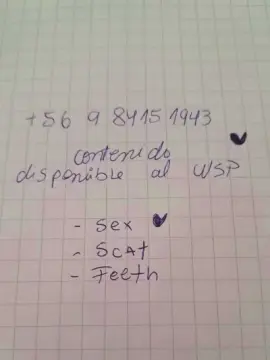 +56 9 8415 1943
contenido
disponible al WSP
- Sex
- Scat
- Feeth